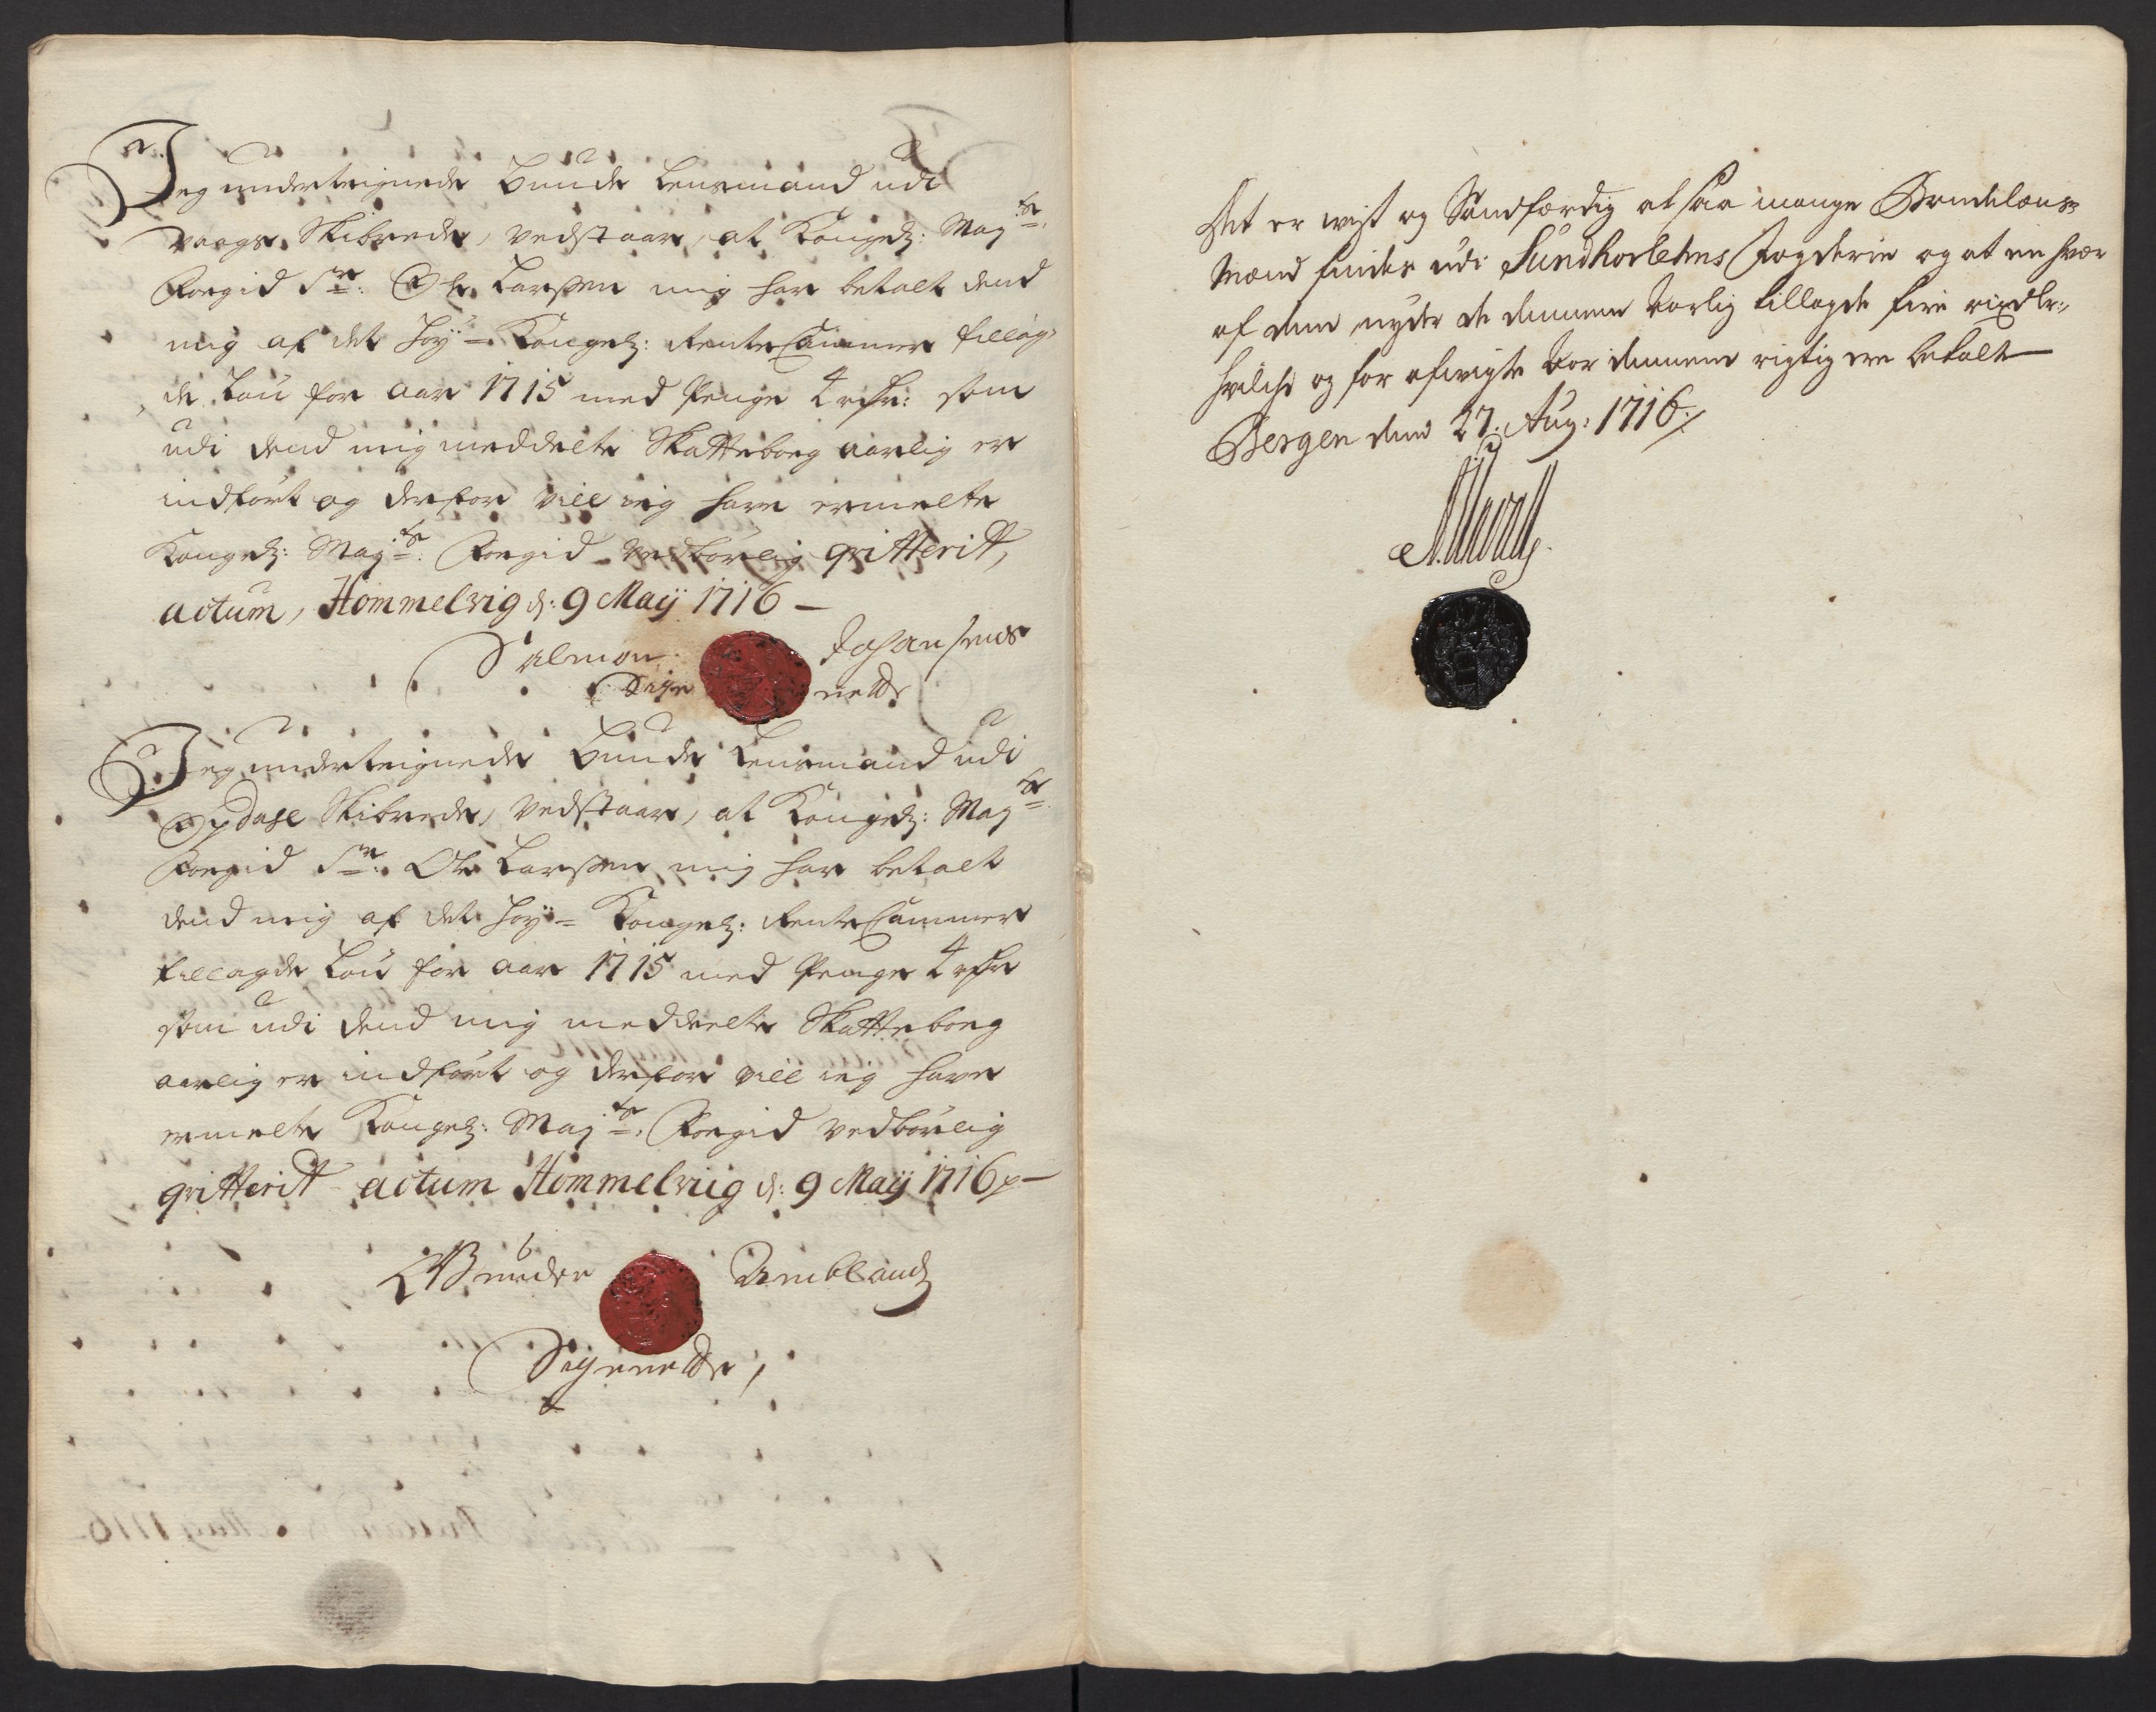 Jeg underteignede Bunde Lensmand udi
Waags Skibrede, vedstaar, at Kongel: May:ts
Foegid Sr: Ole Larssen mig har betalt dend
mig af det Höy= Kongel: Rente Cammer tillag,
de Lön for aar 1715 med Penge 4 rdr: som
udi dend mig meddelte Skattebog aarlig er
indført og derfor vill ieg have ermelte
Kongel: May:ts Foegid vedbørlig qvitterit,
actum, Hommelvig d: 9 Maij 1716 –
Salmon Johansens
Signette
Jeg underteignede Bunde Lensmand udi
Opdahl Skibrede, vedstaar, at Kongel: May:ts
Foegid Sr: Ole Larssen mig har betalt
dend mig af det Höy= Kongel: Rente Cammer
tillagde Lön for aar 1715 med Penge 4 rdr
som udi dend mig meddeelte Skattebog
aarlig er indført og derfor vill ieg have
ermelte Kongel: May:ts Foegid vedbørlig
qvitterit actum Hommelvig d: 9 Maij 1716
Amblands
Signette,
Det er vist og Sandfærdig at saa mange Bondelens=
Mænd findes udi Sundhorlehns Fogderie og at en hver
af dem nyder de dennem aarlig tillagde fire rixdlr:,
hvilche og for afvigte Aar dennem rigtig ere betalt
Bergen denn 27. Aug: 1716